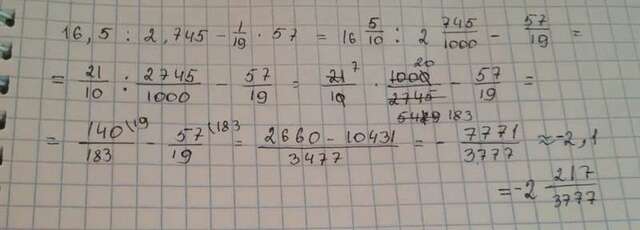 16,5 : 2,745 - 1/19 · 57 = 16 5/10 : 2 745/1000 - 57/19 =
= 21/10 : 2745/1000 - 57/19 = 21 7/10 · 1000 20/2745 549 183 - 57/19 =
= 140\19/183 - 57\183/19 = 2660 - 10431/3477 = - 7771/3777 ≈ -2,1
= -2 217/3777